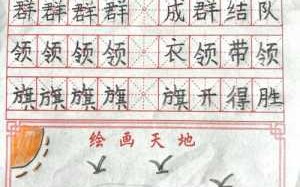 群群群群 成群结队
领领领领 衣领带领
旗旗旗旗 旗开得胜
绘画天地